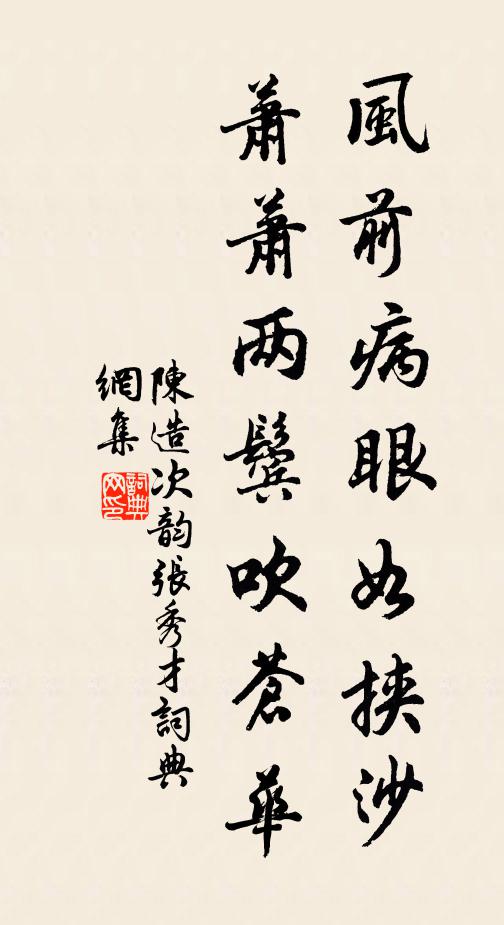 風前病眼如挾沙
蕭蕭两鬓吹蒼華
陳造次韵張秀才詞典
網集
詞典
网印